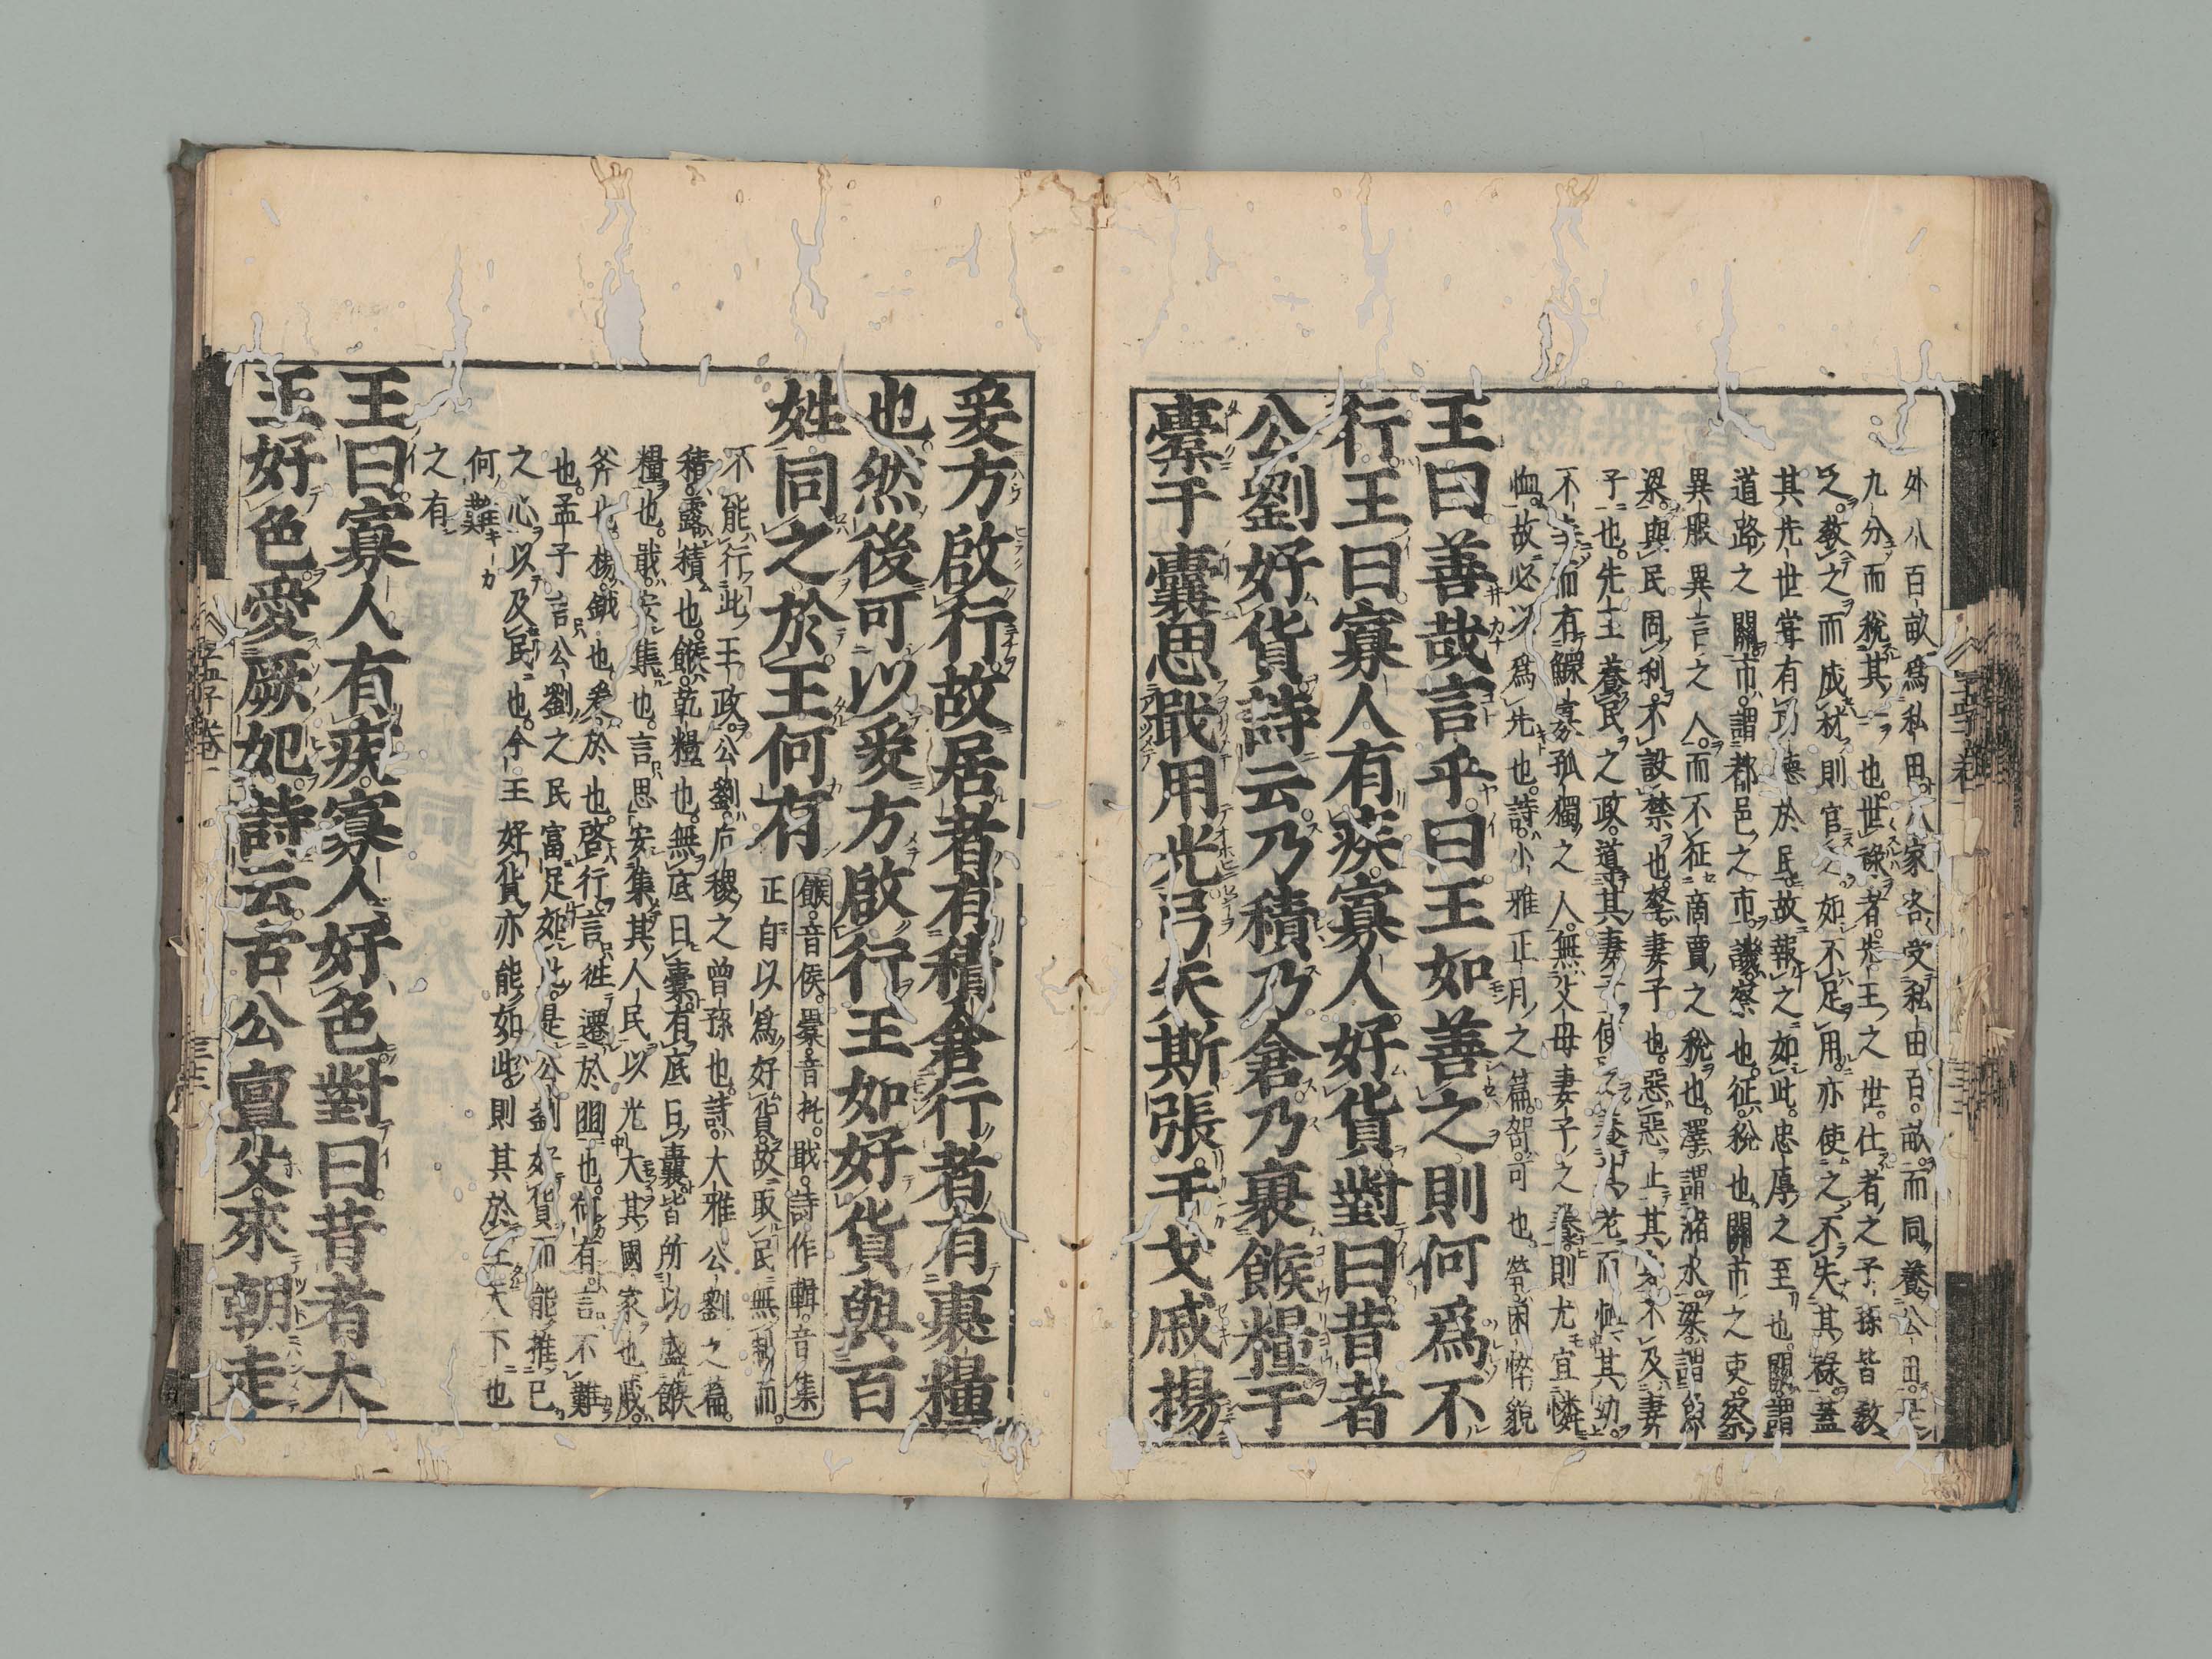 外八百畝爲私田八家各受私田百畝而同養公田是
九分而稅其一也世祿者先王之世仕者之子孫皆敎
之敎之而成材則官之如不足用亦使之不失其祿蓋
其先世嘗有功德於民故報之如此忠厚之至也關謂
道路之關市謂都邑之市譏察也征稅也關市之吏察
異服異言之人而不征商賈之稅也澤謂瀦水梁謂魚
梁與民同利不設禁也孥妻子也惡惡止其身不及妻
子也先王養民之政道其妻子使之養其老而恤其幼
不幸而有鰥寡孤獨之人無父母妻子之養則尤宜憐
恤故必以爲先也詩小雅正月之篇哿可也煢困悴貌
王曰善哉言乎曰王如善之則何爲不
行王曰寡人有疾寡人好貨對曰昔者
公劉好貨詩云乃積乃倉乃裹餱糧于
橐于囊思戢用光弓矢斯張干戈戚揚
爰方啟行故居者有積倉行者有裹糧
也然後可以爰方啟行王如好貨與百
姓同之於王何有
餱音侯橐音托戢詩作輯音集
正自以爲好貨故取民無制而
不能行此王政公劉后稷之曾孫也詩大雅公劉之篇
積露積也餱乾糧也無底曰橐有底曰囊皆所以盛餱
糧也戢安集也言思安集其人民以光大其國家也戚
斧也揚鉞也爰於也啓行言徃遷於豳也何有言不難
也孟子言公劉之民富足如此是公劉好貨而能推已
之心以及民也今王好貨亦能如此則其於王天下也
何難
之有
王曰寡人有疾寡人好色對曰昔者大
王好色愛厥妃詩云古公亶父來朝走
孟子卷一